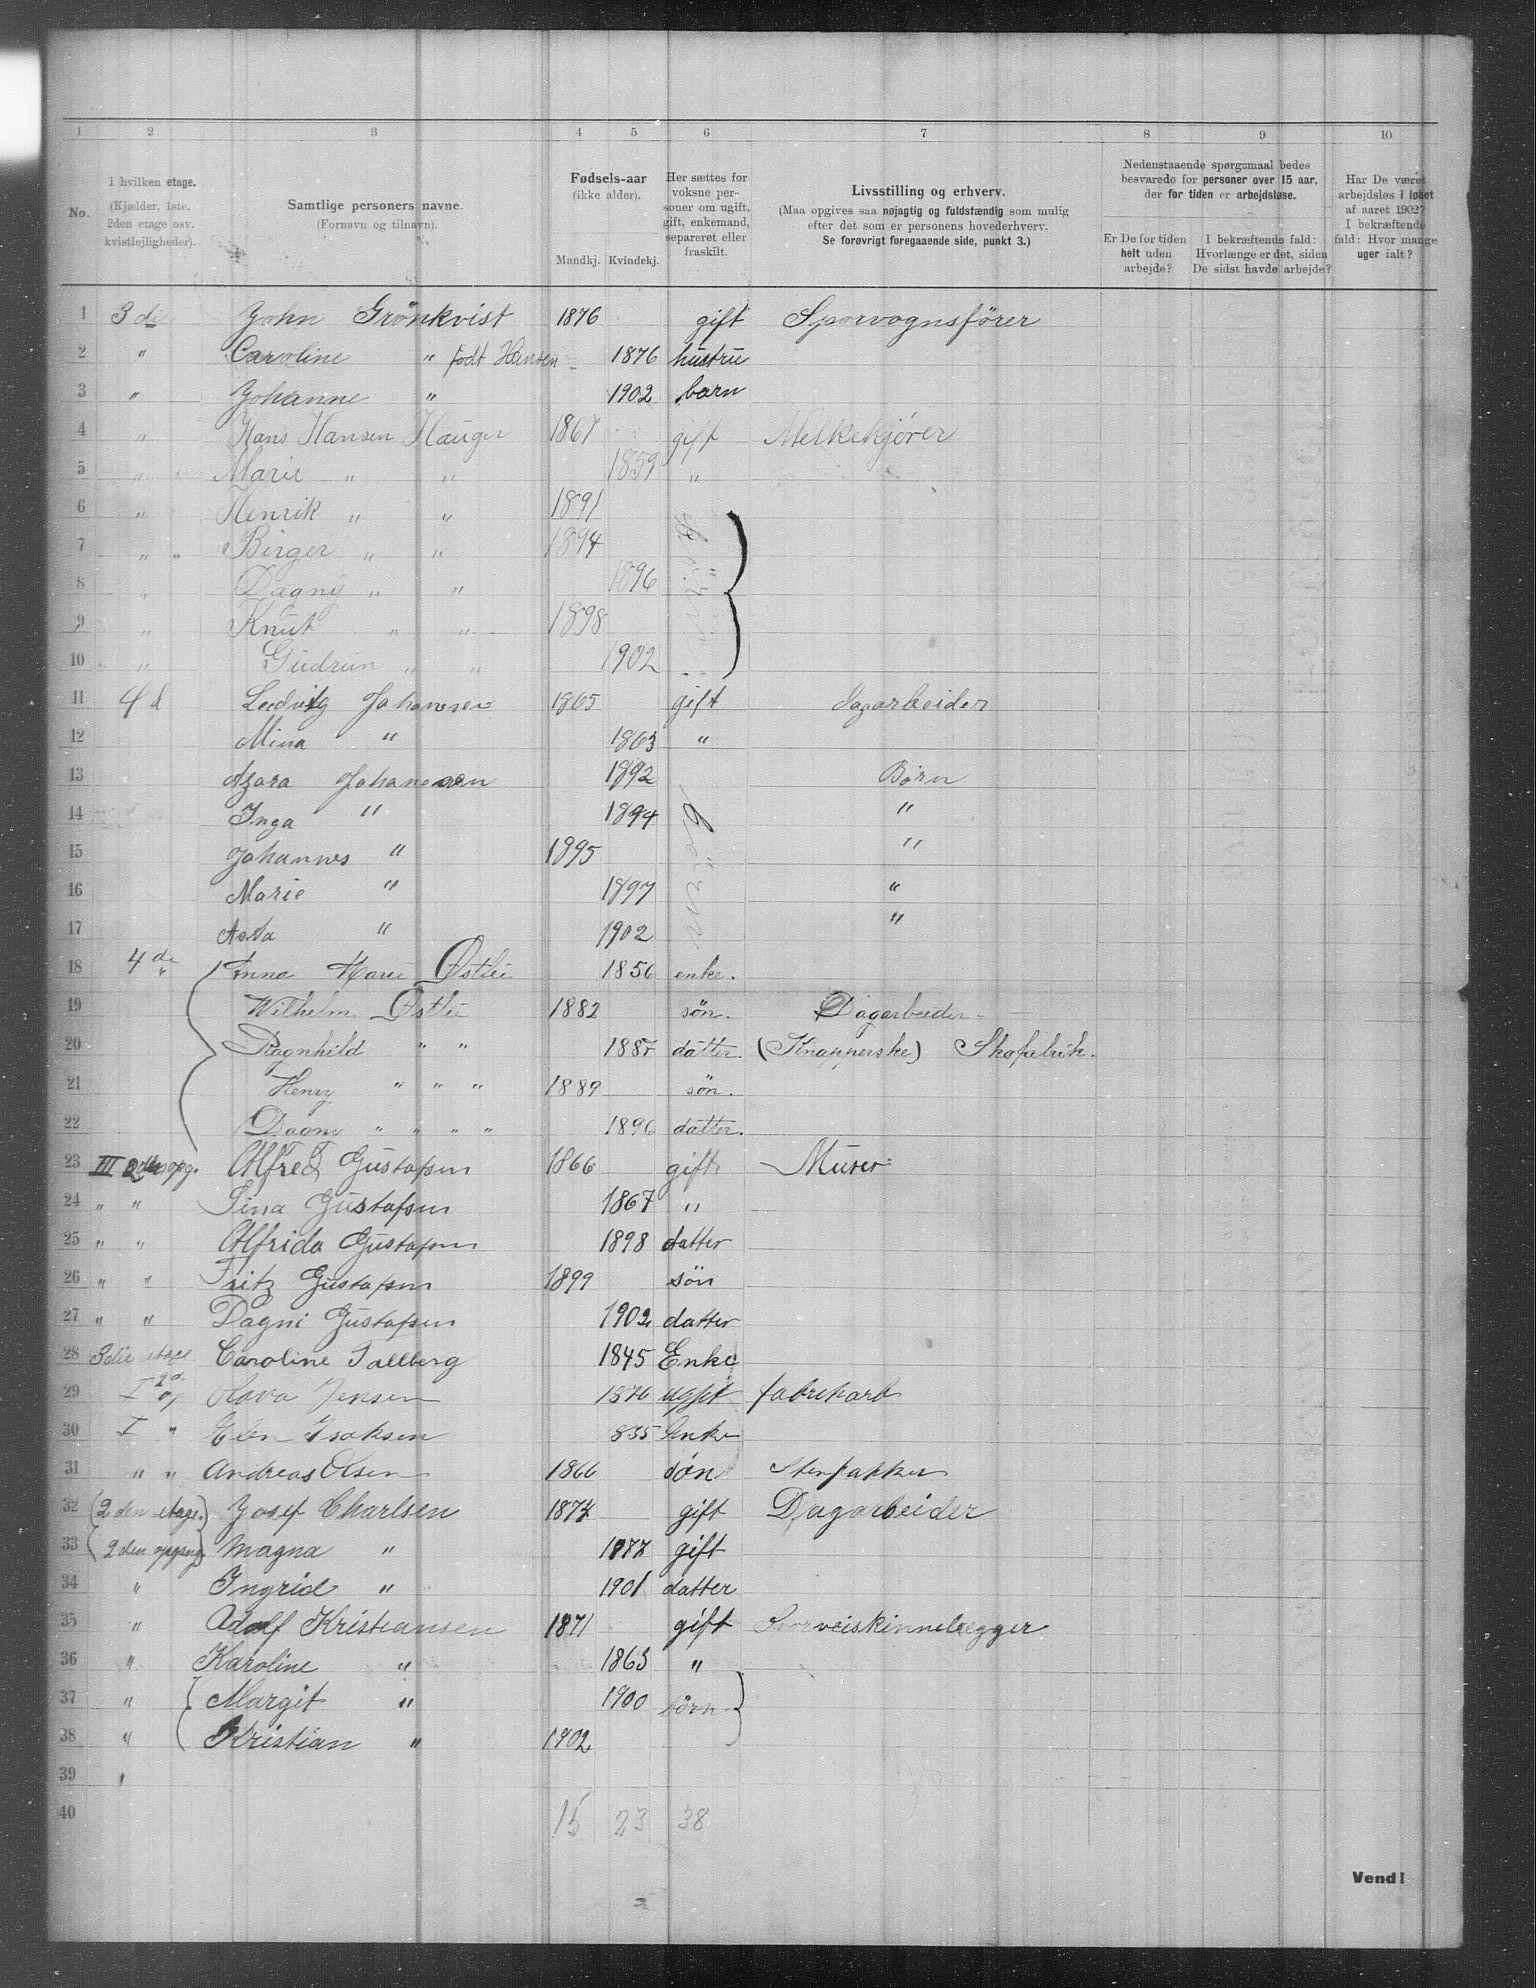 1 2 3 4 5 6 7 8 9 10
No.
I hvilken etage. (Kjælder, 1ste. 2den etage osv. kvistlejligheder).
Samtlige personers navne. (Fornavn og tilnavn).
Fødsels-aar (ikke alder). Mandkj. Kvindekj.
Her sættes for voksne personer om ugift, gift, enkemand, separeret eller fraskilt.
Livsstilling og erhverv. (Maa opgives saa nøjagtig og fuldstændig som mulig efter det som er personens hovederhverv. Se forøvrigt foregaaende side, punkt 3.)
Nedenstaaende spørgsmaal bedes besvarede for personer over 15 aar, der for tiden er arbejdsløse.
Er De for tiden helt uden arbejde?
I bekræftende fald: Hvorlænge er det, siden De sidst havde arbejde?
Har De været arbejdsløs i løbet af aaret 1902? I bekræftende fald: Hvor mange uger ialt?
1 3 die John Grönkvist 1876 gift Sporvognsförer
2 " Caroline " født Hansen 1876 hustru
3 " Johanne " 1902 barn
4 " Hans Hansen Hauger 1867 gift Melkekjører
5 " Marie " " 1859 "
6 " Henrik " " 1891
7 " " Birger " " 1894 Börn
8 " Dagny " " 1896
9 " Knut " " 1898
10 " Gudrun " " 1902
11 4 d Ludvig Johansen 1865 gift Dagarbeider
12 Mina " 1863 "
13 Azora Johansen 1892 Børn
14 Inga " 1894 "
15 Johannes " 1895 börn "
16 Marie " 1897 "
17 Asta " 1902 "
18 4 de " Anna Marie Østlie 1856 enke.
19 Wilhelm Østlie 1882 søn. Dagarbeider
20 Ragnhild " " 1887 datter. (Knapperske) Skofabrik.
21 Henry " " " 1889 søn.
22 Dagny " " " " 1896 datter.
23 III 2den opg. Alfred Gustafsen 1866 gift. Murer
24 " " Tina Gustafsen 1867 "
25 " " Alfrida Gustafsen 1898 datter
26 " " Fritz Gustafsen 1899 sön
27 " " Dagni Gustafsen 1902 datter
28 3die etage Caroline Tallberg 1845 Enke
29 I 2 op Olava Jensen 1876 ugift fabrikarb
30 I " Elen Isaksen 835 Enke
31 " " Andreas Olsen 1866 søn
32 (2 den etage.) Josef Charlsen 1874 gift Dagarbeider
33 (2 den opgang) Magna " 1877 gift
34 " Ingrid " 1901 datter
35 " Adolf Kristiansen 1871 gift Sporveiskinnelægger
36 " Karoline " 1863 "
37 " Margit " 1900 börn
38 " Kristian " 1902
39 "
40 15 23 38
Vend!